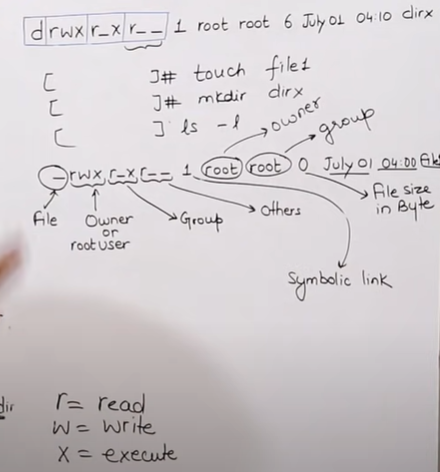 drwxr_xr__ 1 root root 6 July 01 04:10 dirx
[ ]# touch file1
[ ]# mkdir dirx
[ ] ls -l
owner
group
-rwxr-xr-- 1 root root 0 July 01 04:00
File
Owner or root user
Group
Others
File size in Byte
Symbolic link
dir
r= read
w= write
x= execute